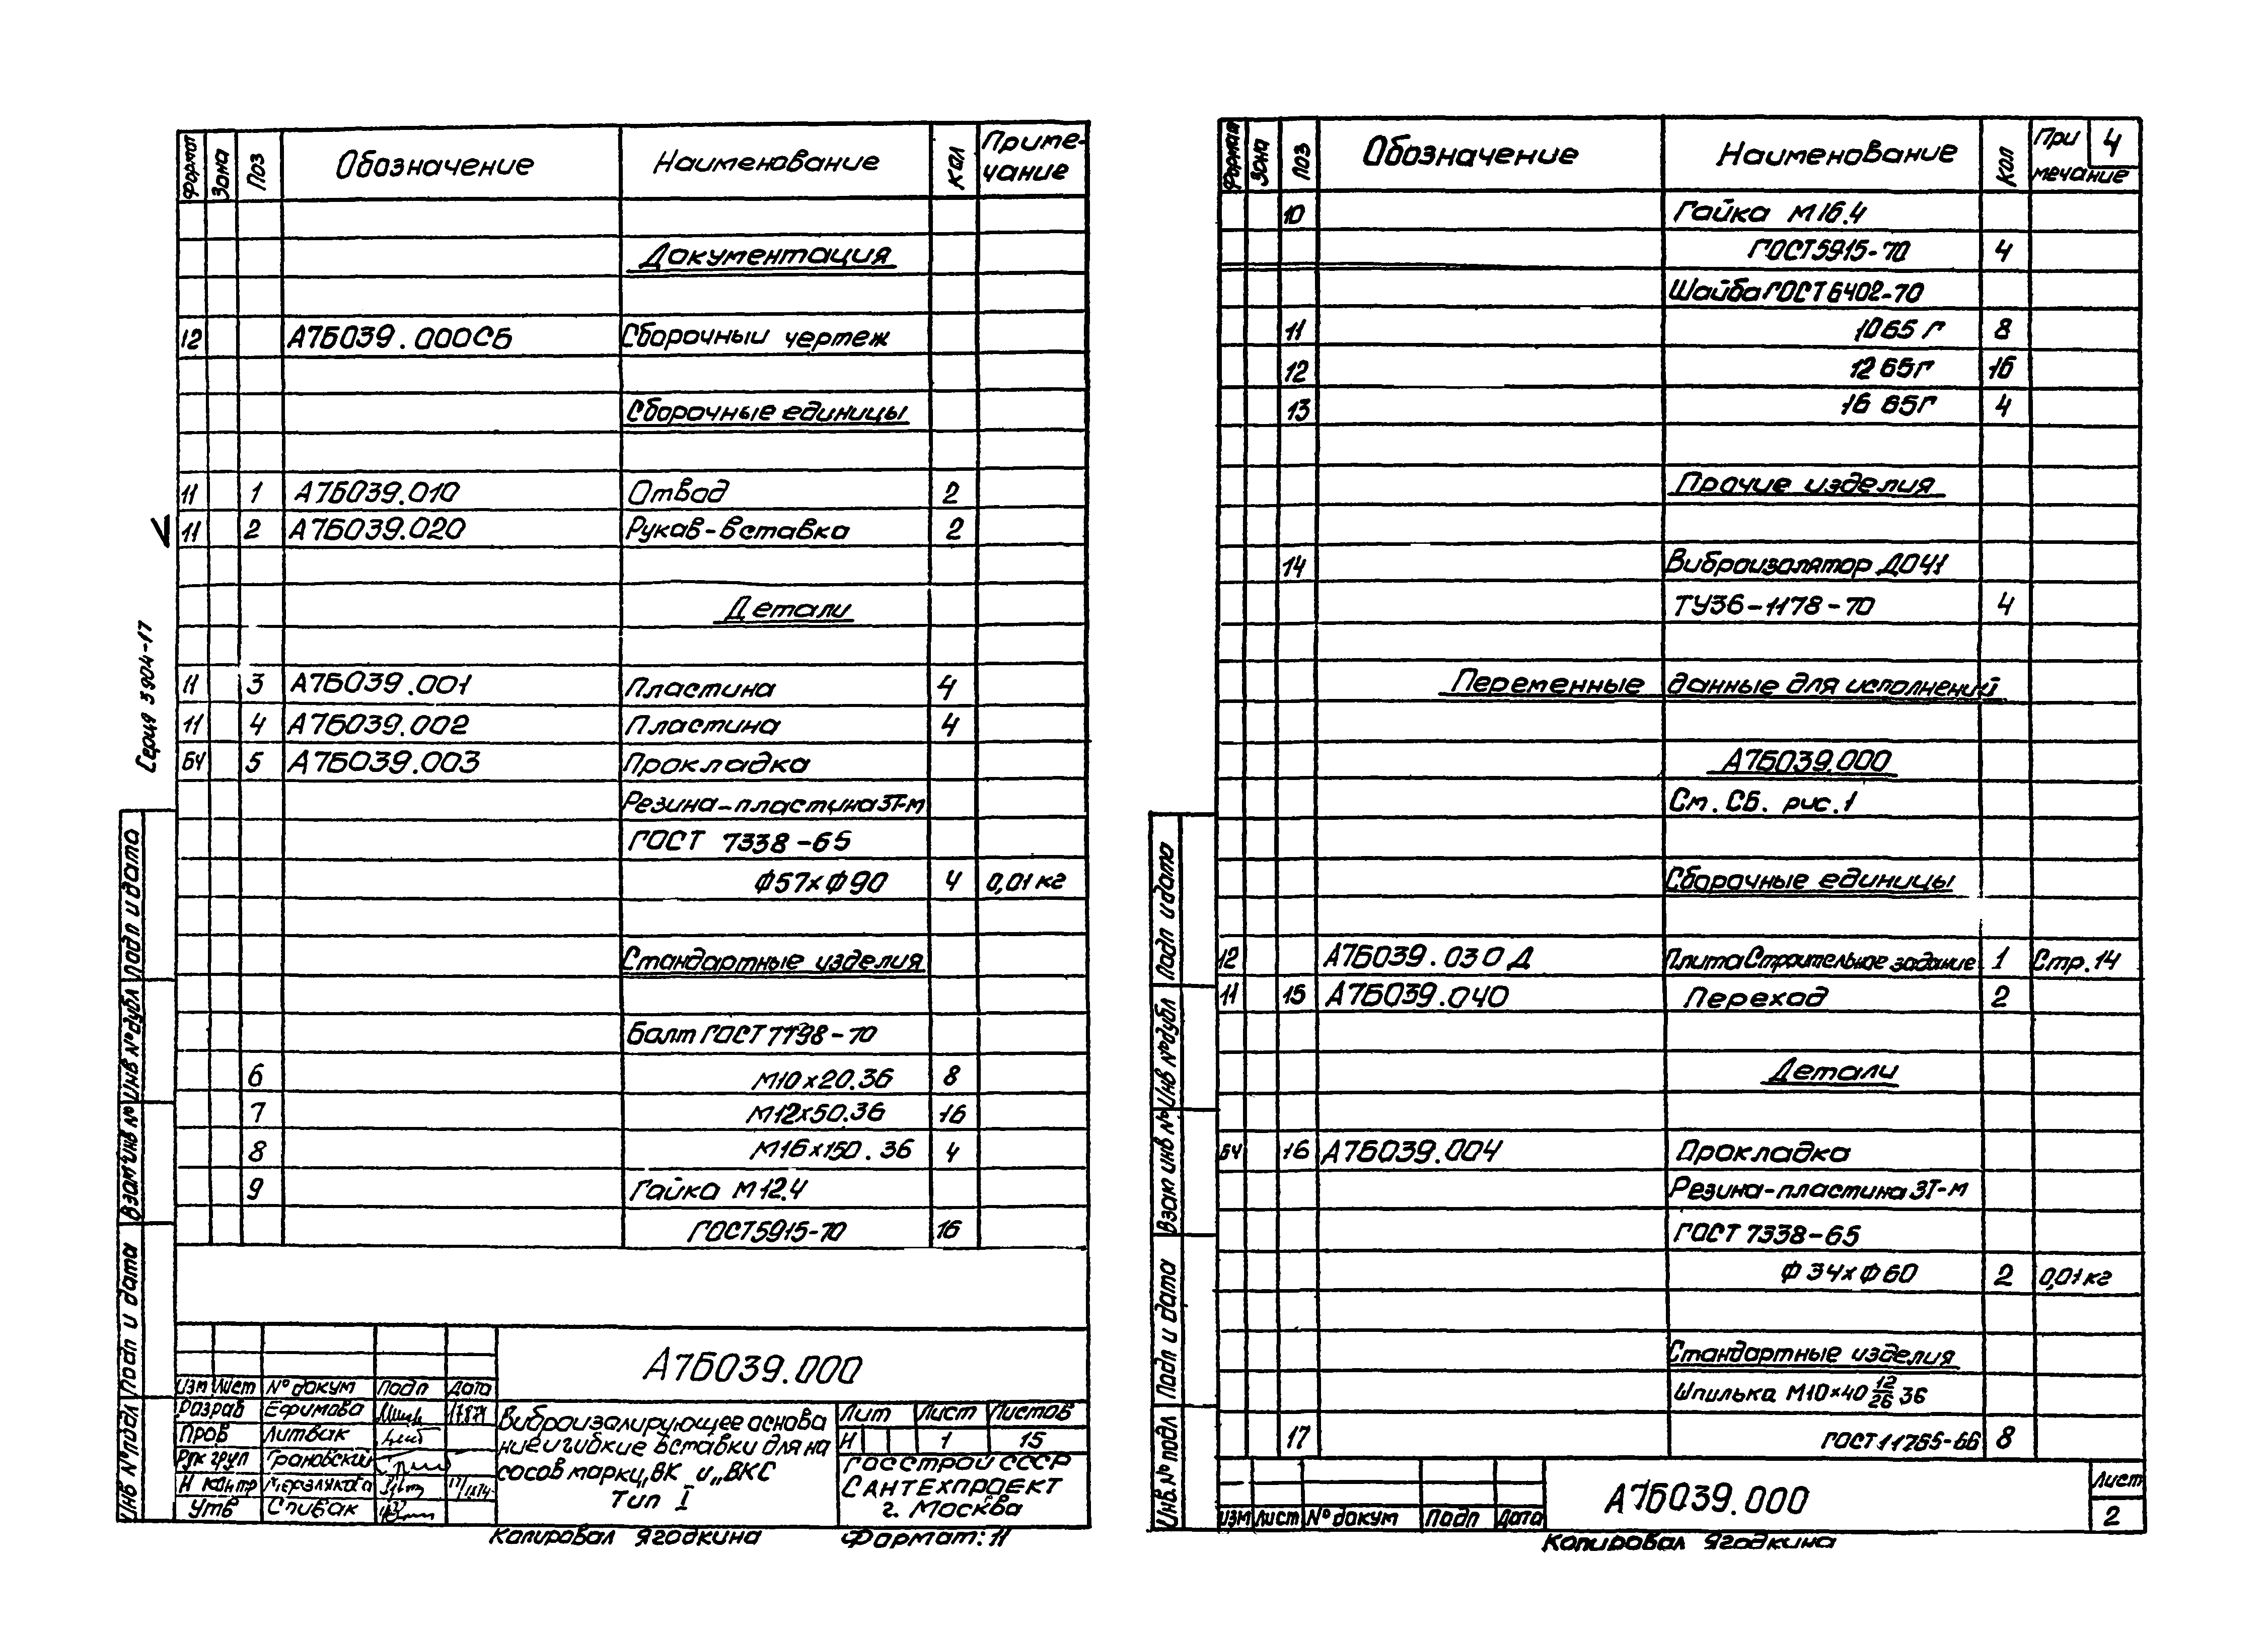 Формат Зона Поз Обозначение Наименование Кол Приме-
чание
Документация
12 А7Б039.000СБ Сборочный чертеж
Сборочные единицы
11 1 А7Б039.010 Отвод 2
V 11 2 А7Б039.020 Рукав-вставка 2
Детали
11 3 А7Б039.001 Пластина 4
11 4 А7Б039.002 Пластина 4
БЧ 5 А7Б039.003 Прокладка
Резина-пластина 3Т-м
ГОСТ 7338-65
Ф57хФ90 4 0,01кг
Стандартные изделия
Болт ГОСТ 7798-70
6 М10х20.36 8
7 М12х50.36 16
8 М16х150.36 4
9 Гайка М12.4
ГОСТ5915-70 16
Серия 3904-17
Подп и дата
Инв №дубл
Взам инв №
Подп и дата
Инв №подл
А7Б039.000
Изм Лист №докум Подп Дата
Разраб Ефимова
Пров Литвак
Рук груп Грановский
Н контр
Утв Спивак
Виброизолирующее основа
ние и гибкие вставки для на
сосов марки„ВК и„ВКС
Тип I
Лит Лист Листов
И 1 15
ГОССТРОЙ СССР
САНТЕХПРОЕКТ
г. Москва
Копировал Ягодкина Формат: 11
Формат Зона Поз Обозначение Наименование Кол При
мечание
4
10 Гайка М16.4
ГОСТ5915-70 4
Шайба ГОСТ6402-70
11 10 65 Г 8
12 12 65г 16
13 16 65Г 4
Прочие изделия
14 Виброизолятор ДО41
ТУ36-1178-70 4
Переменные данные для исполнений
А7Б039.000
См. СБ. рис.1
Сборочные единицы
12 А7Б039.030 Д Плита Строительное задание 1 Стр.14
11 15 А7Б039.040 Переход 2
Детали
БЧ 16 А7Б039.004 Прокладка
Резина-пластина 3Т-м
ГОСТ 7338-65
Ф34хФ60 2 0,01кг
Стандартные изделия
Шпилька М10х40 12/26 36
17 ГОСТ11765-66 8
Подп и дата
Инв №дубл
Взам инв №
Подп и дата
Инв.№ подл
Изм Лист №докум Подп Дата
А7Б039.000
Лист
2
Копировал Ягодкина